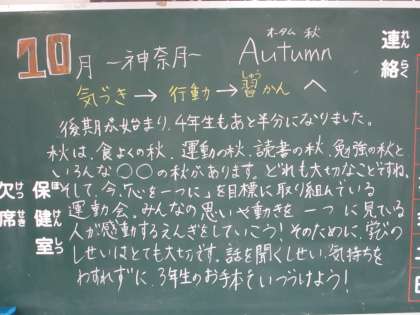 10月 ～神奈月～ Autumn オータム 秋
気づき → 行動 → 習かん しゅう へ
後期が始まり、4年生もあと半分になりました。
秋は、食よくの秋、運動の秋、読書の秋、勉強の秋と
いろんな〇〇の秋があります。どれも大切なことですね。
そして、今、「心を一つに」を目標に取り組んでいる
運動会。みんなの思いや動きを一つに見ている
人が感動するえんぎをしていこう！そのために、学びの
しせいはとても大切です。話を聞くしせい、気持ちを
わすれずに、3年生のお手本をいつづけよう！
連絡 れんらく
保健室 ほけんしつ
欠席 けっせき